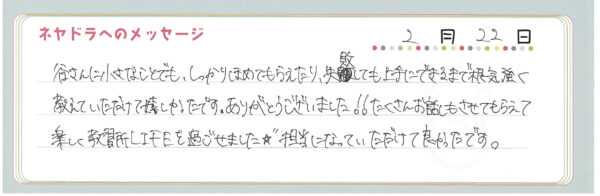 ネヤドラへのメッセージ
2月22日
谷さんに小さなことでも、しっかりほめてもらえたり、失敗しても上手にできるまで根気強く
教えていただけて嬉しかったです。ありがとうございました!!たくさんお話しもさせてもらえて
楽しく教習所LIFEを過ごせました☆担当になっていただけて良かったです。